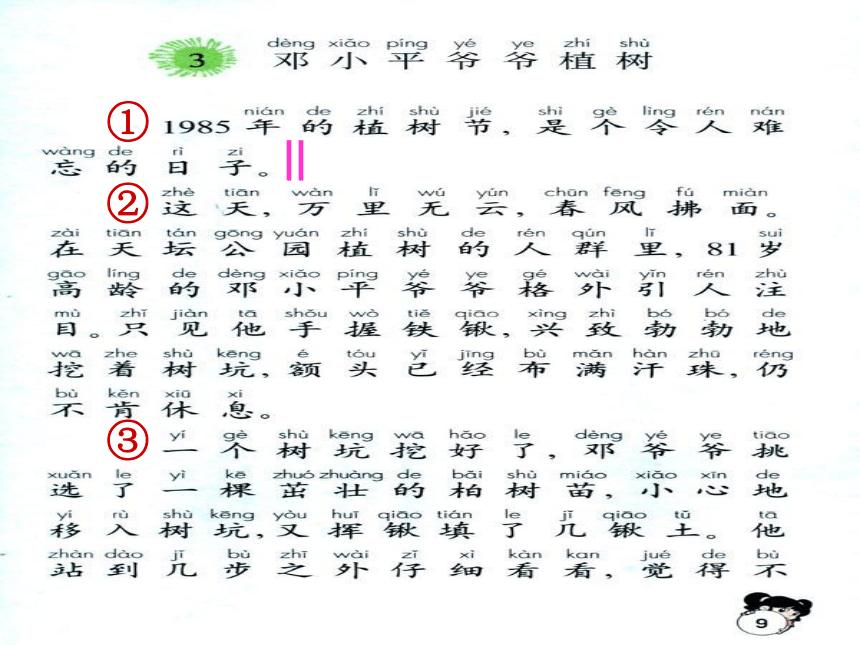 dèng xiǎo píng yé ye zhí shù
3 邓小平爷爷植树
nián de zhí shù jié shì gè lìng rén nán
① 1985 年的植树节,是个令人难
wàng de rì zi
忘的日子。
zhè tiān wàn lǐ wú yún chūn fēng fú miàn
② 这天,万里无云,春风拂面。
zài tiān tán gōng yuán zhí shù de rén qún lǐ suì
在天坛公园植树的人群里,81 岁
gāo líng de dèng xiǎo píng yé ye gé wài yǐn rén zhù
高龄的邓小平爷爷格外引人注
mù zhǐ jiàn tā shǒu wò tiě qiāo xìng zhì bó bó de
目。只见他手握铁锹,兴致勃勃地
wā zhe shù kēng é tóu yǐ jīng bù mǎn hàn zhū réng
挖着树坑,额头已经布满汗珠,仍
bù kěn xiū xi
不肯休息。
yí gè shù kēng wā hǎo le dèng yé ye tiāo
③ 一个树坑挖好了,邓爷爷挑
xuǎn le yì kē zhuó zhuàng de bǎi shù miáo xiǎo xīn de
选了一棵茁壮的柏树苗,小心地
yí rù shù kēng yòu huī qiāo tián le jǐ qiāo tǔ tā
移入树坑,又挥锹填了几锹土。他
zhàn dào jǐ bù zhī wài zǐ xì kàn kan jué de bù
站到几步之外仔细看看,觉得不
9